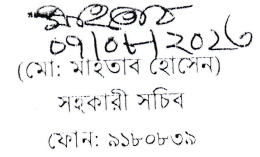 মাহতাব
০৭/০৮/২০২৩
(মো: মাহতাব হোসেন)
সহকারী সচিব
ফোন: ৯১৮০৮৩৯